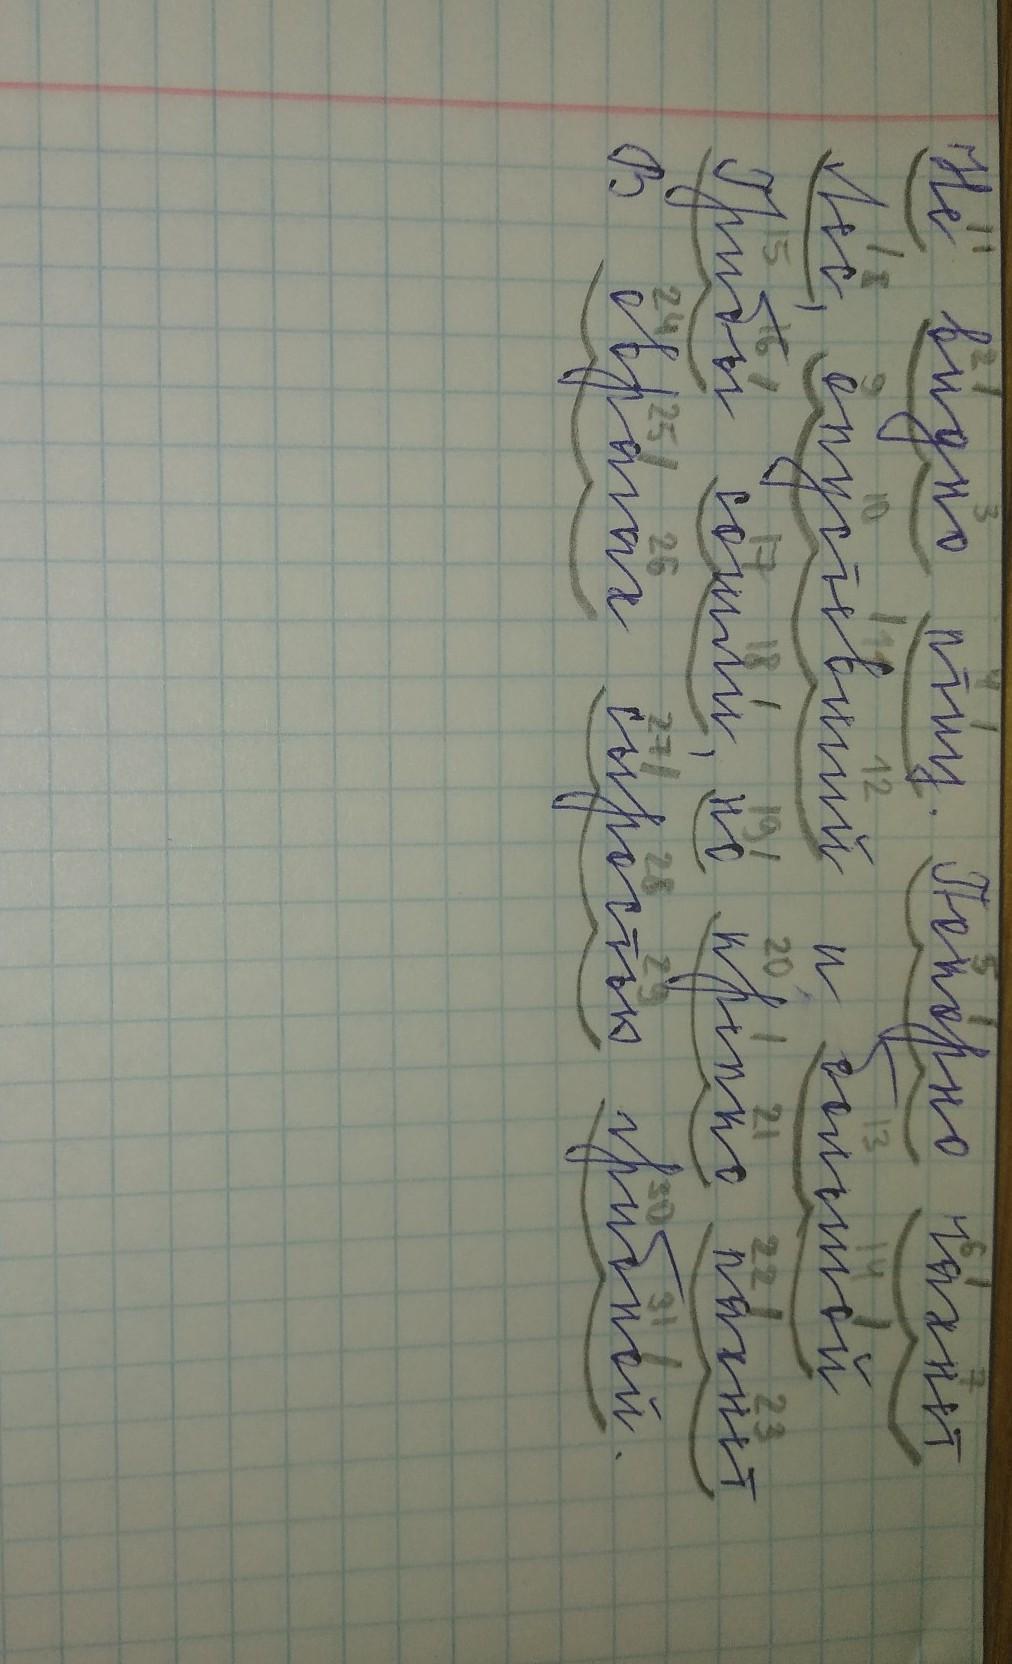 Не видно птиц. Покорно чахнет
Лес, опустевший и больной
Грибы сошли, но крепко пахнет
В оврагах сыростью грибной.